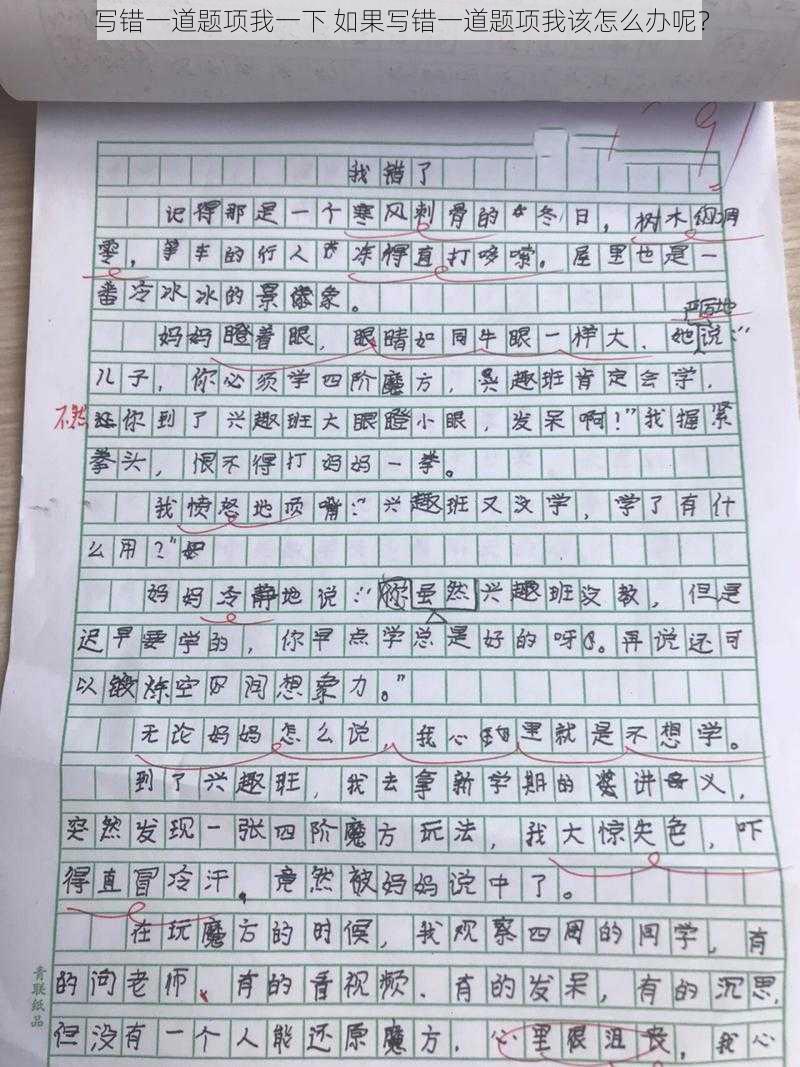 写错一道题项我一下 如果写错一道题项我该怎么办呢?
91
我错了
记得那是一个寒风刺骨的冬日，树木凋
零，骑车的行人冻得直打哆嗦。屋里也是一
番冷冰冰的景象。
严厉地
妈妈瞪着眼，眼睛如同牛眼一样大，她说："
儿子，你必须学四阶魔方，兴趣班肯定会学，
不然你到了兴趣班大眼瞪小眼，发呆啊！"我握紧
拳头，恨不得打妈妈一拳。
我愤怒地顶嘴："兴趣班又没学，学了有什
么用？"
妈妈冷静地说："你虽然兴趣班没教，但是
迟早要学的，你早点学总是好的呀。再说还可
以锻炼空间想象力。"
无论妈妈怎么说，我心里就是不想学。
到了兴趣班，我去拿新学期的讲义，
突然发现一张四阶魔方玩法，我大惊失色，吓
得直冒冷汗，竟然被妈妈说中了。
在玩魔方的时候，我观察四周的同学，有
的问老师、有的看视频、有的发呆，有的沉思，
但没有一个人能还原魔方，心里很沮丧，我心
青联纸品